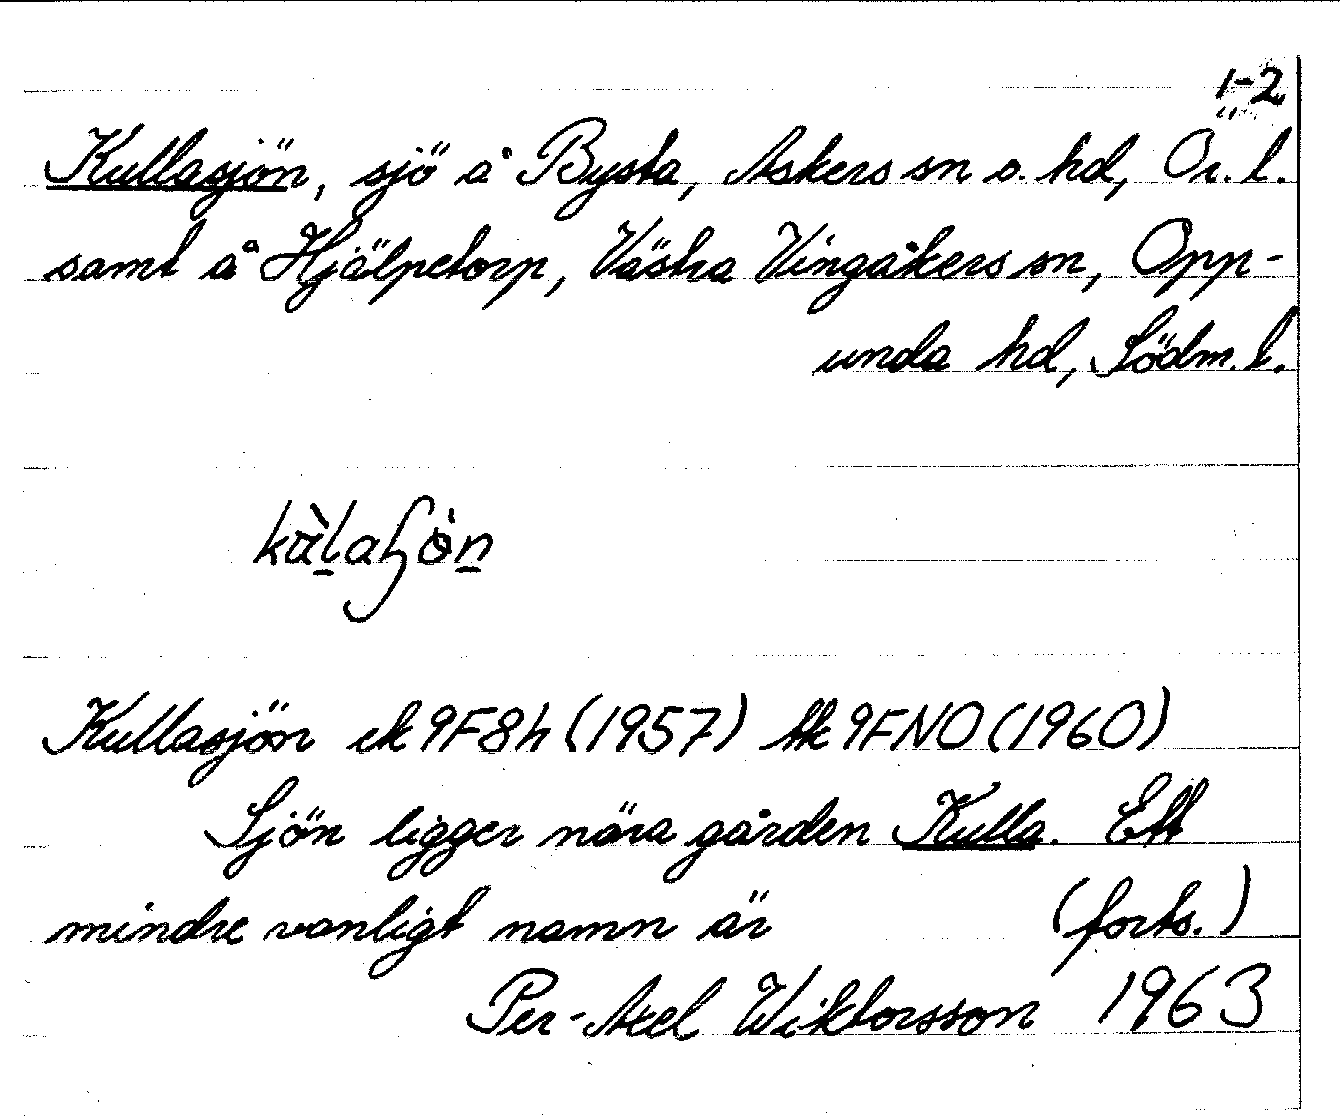 1-2
Kullasjön, sjö å Bysta, Askers sn o. hd, Ör. l.
samt å Hjälpetorp, Västra Vingåkers sn, Opp-
unda hd, Södm. l.
Kullasjön ek 9F8h (1957) tk 9FNO (1960)
Sjön ligger nära gården Kulla. Ett
mindre vanligt namn är (forts.)
Per-Axel Wiktorsson 1963